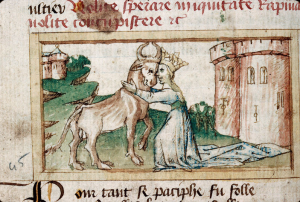 ultiev Nolite sperare in iniquitate Rapin
nolite concupiscere &c
45
Pour tant se paciphe fu folle